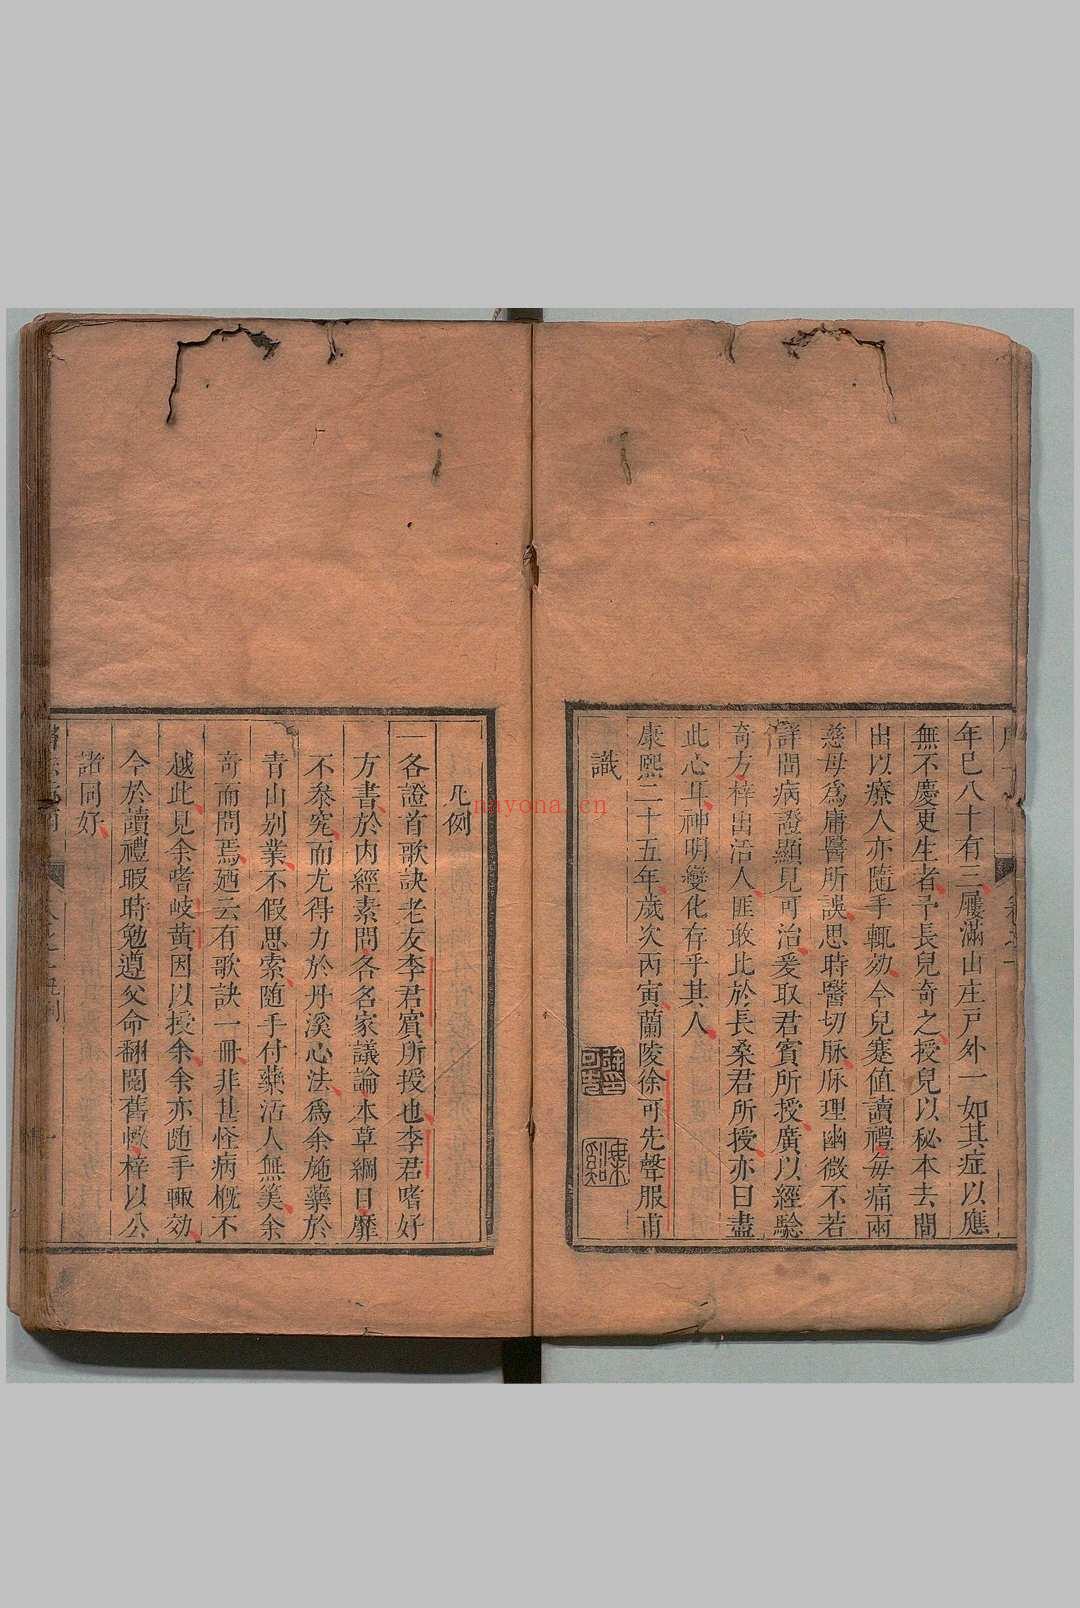 年巳八十有三屨滿山庄戸外一如其症以應
無不慶更生者予長兒奇之授兒以秘本去間
出以療人亦隨手輒効今兒蹇值讀禮每痛兩
慈母爲庸醫所誤思時醫切脉脉理幽微不若
詳問病證顯見可治爰取君賓所授廣以經驗
奇方梓出活人匪敢比於長桑君所授亦曰盡
此心耳神明變化存乎其人
康熙二十五年歲次丙寅蘭陵徐可先聲服甫
識
凡例
一各證首歌訣老友李君賓所授也李君嗜好
方書於内經素問各各名家議論本草綱目靡
不叅究而尤得力於丹溪心法爲余施藥於
青山别業不假思索随手付藥活人無筭余
竒而問焉廼云有歌訣一冊非甚怪病概不
越此見余嗜岐黄因以授余余亦随手輙効
今於讀禮暇時勉遵父命翻閱舊帙梓以公
諸同好
nayona.cn